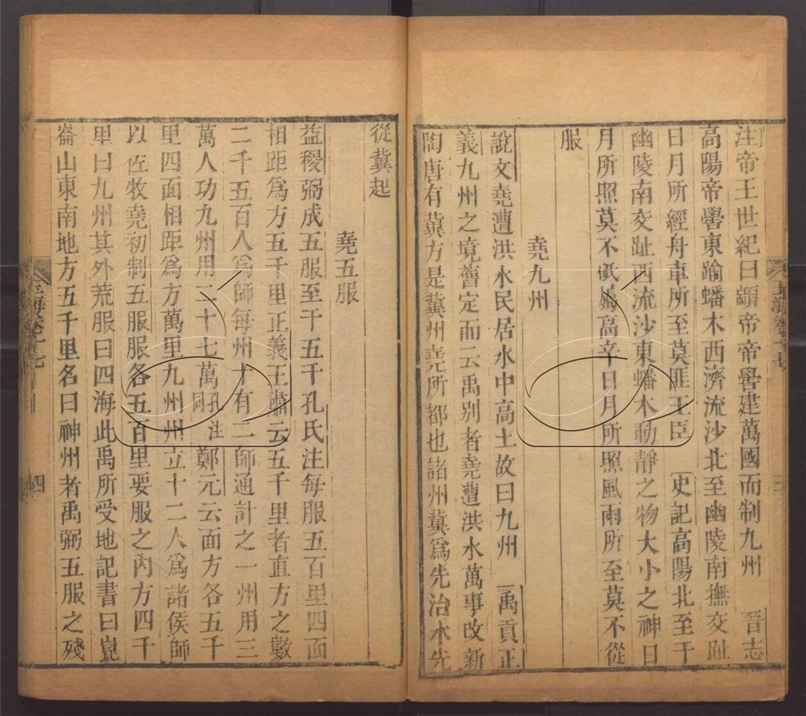 注帝王世紀曰顓帝帝嚳建萬國而制九州　晉志
高陽帝嚳東踰蟠木西濟流沙北至幽陵南撫交趾
日月所經舟車所至莫匪王臣　史記高陽北至于
幽陵南交趾西流沙東蟠木動靜之物大小之神日
月所照莫不砥屬高辛日月所照風雨所至莫不從
服
堯九州
說文堯遭洪水民居水中高土故曰九州　禹貢正
義九州之境舊定而云禹別者堯遭洪水萬事改新
陶唐有冀方是冀州堯所都也諸州冀爲先治水先
三
從冀起
堯五服
益稷弼成五服至于五千孔氏注每服五百里四面
相距爲方五千里正義王肅云五千里者直方之數
二千五百人爲師每州十有二師通計之一州用三
萬人功九州用二十七萬孔注同鄭元云面方各五千
里四面相距爲方萬里九州州立十二人爲諸侯師
以佐牧堯初制五服服各五百里要服之內方四千
里曰九州其外荒服曰四海此禹所受地記書曰崑
崙山東南地方五千里名曰神州者禹弼五服之殘
玉海卷十七
四